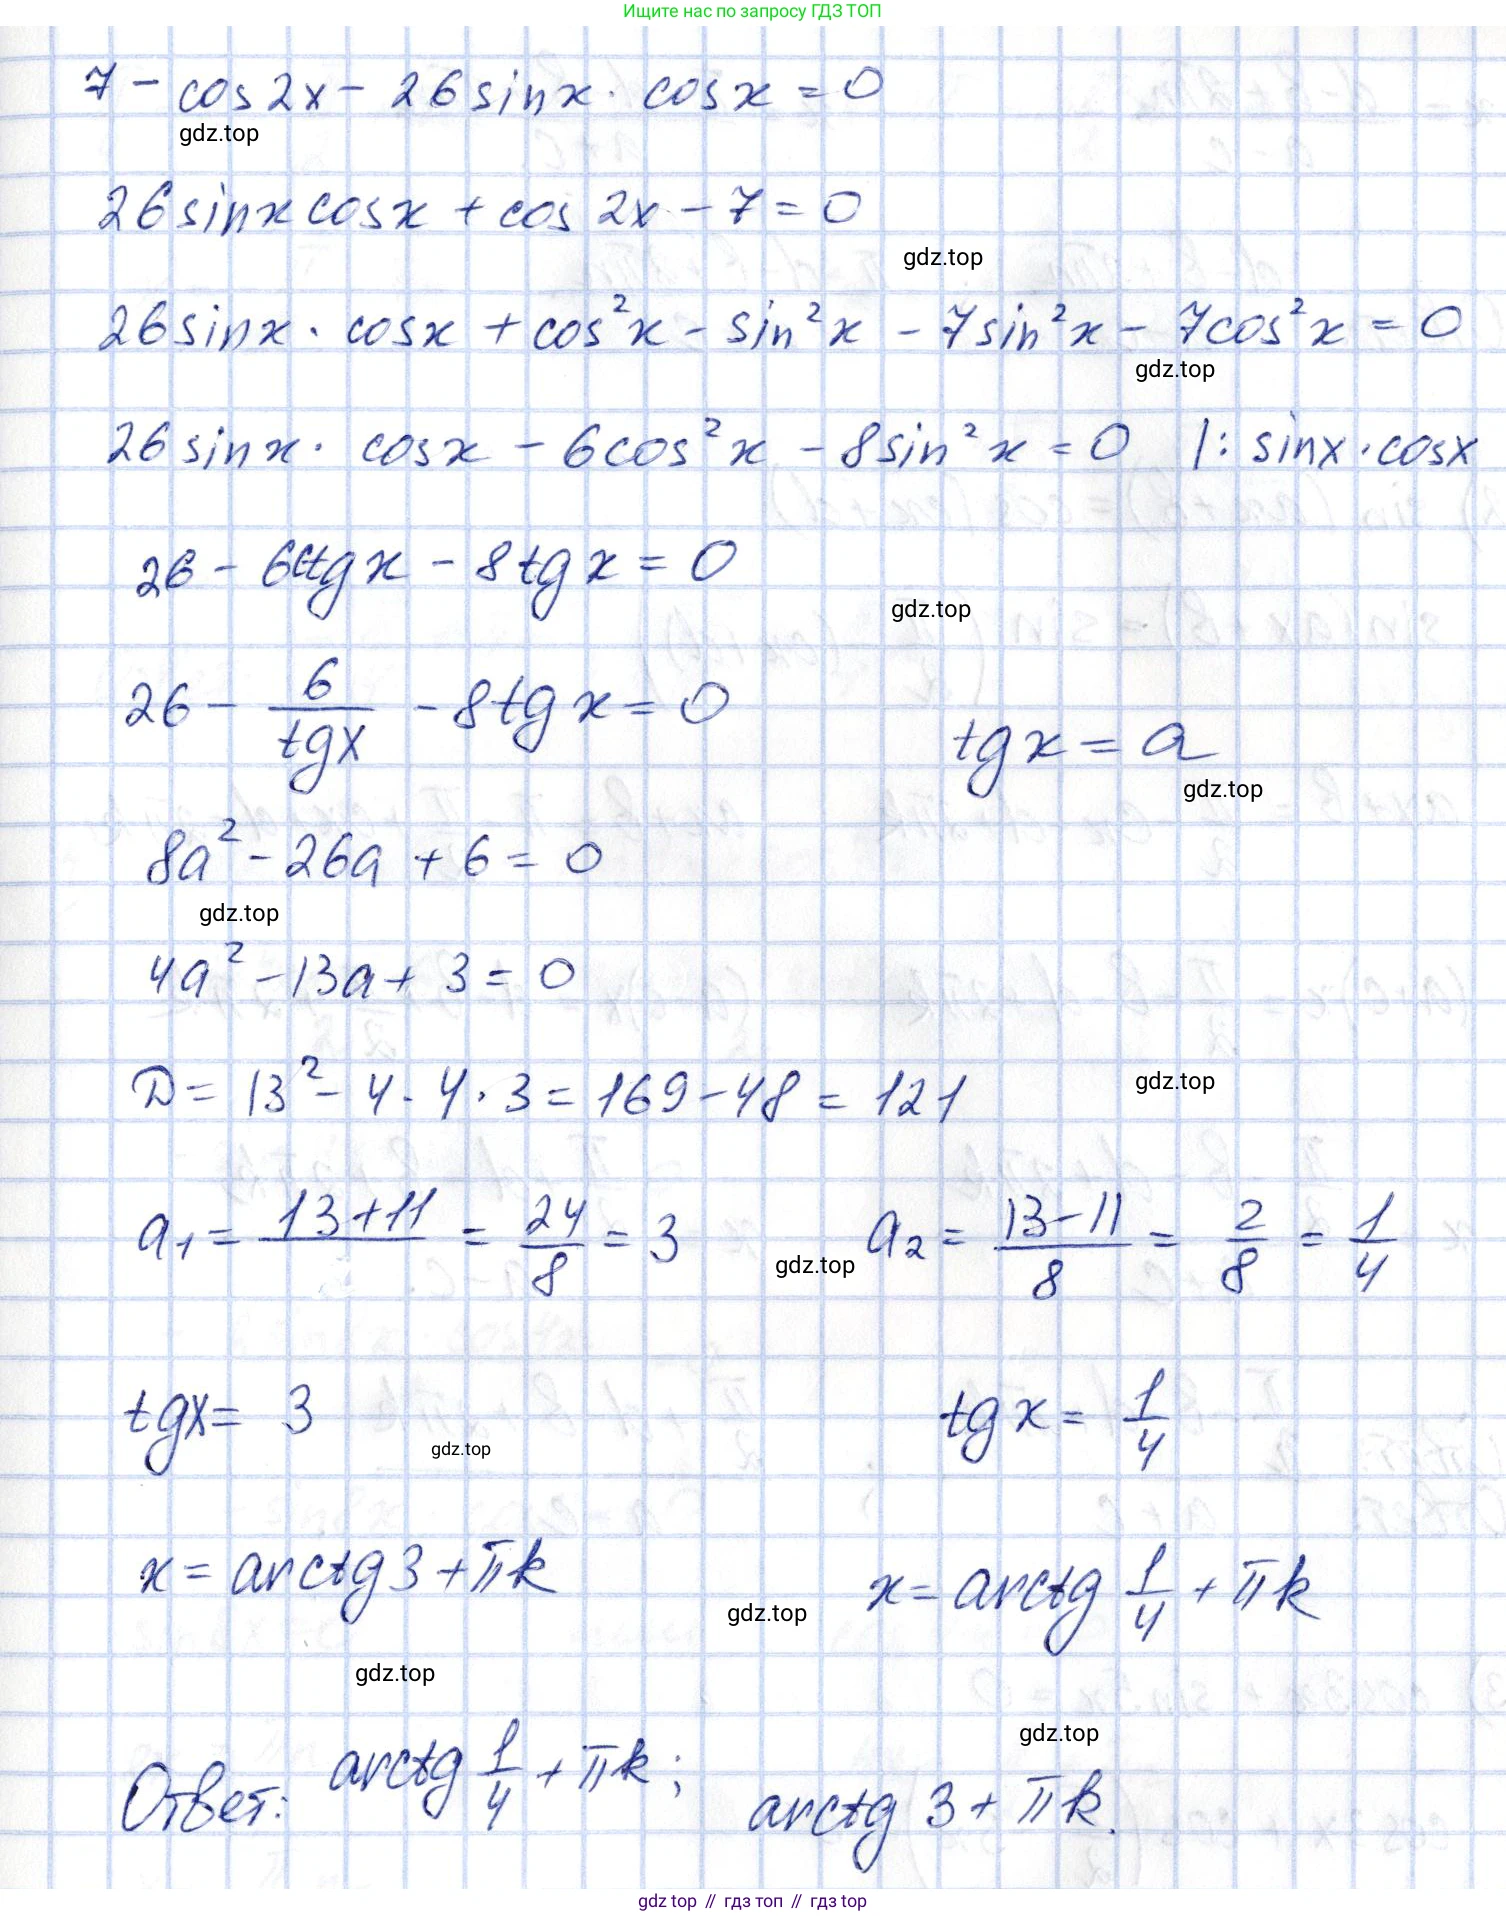 Ищите нас по запросу ГДЗ ТОП
7 - cos2x - 26sinx · cosx = 0
gdz.top
26sinx cosx + cos 2x - 7 = 0
gdz.top
26sinx · cosx + cos²x - sin²x - 7sin²x - 7cos²x = 0
gdz.top
26sinx · cosx - 6cos²x - 8sin²x = 0 |: sinx · cosx
26 - 6ctgx - 8tgx = 0
gdz.top
26 - 6/tgx - 8tgx = 0
tgx = a
gdz.top
8a² - 26a + 6 = 0
gdz.top
4a² - 13a + 3 = 0
D = 13² - 4 · 4 · 3 = 169 - 48 = 121
gdz.top
a₁ = 13+11 = 24/8 = 3 a₂ = 13-11/8 = 2/8 = 1/4
gdz.top
tgx = 3 tgx = 1/4
gdz.top
x = arctg3 + πk x = arctg 1/4 + πk
gdz.top
gdz.top
gdz.top
Ответ: arctg 1/4 + πk; arctg 3 + πk.
gdz top // гдз топ // гдз top